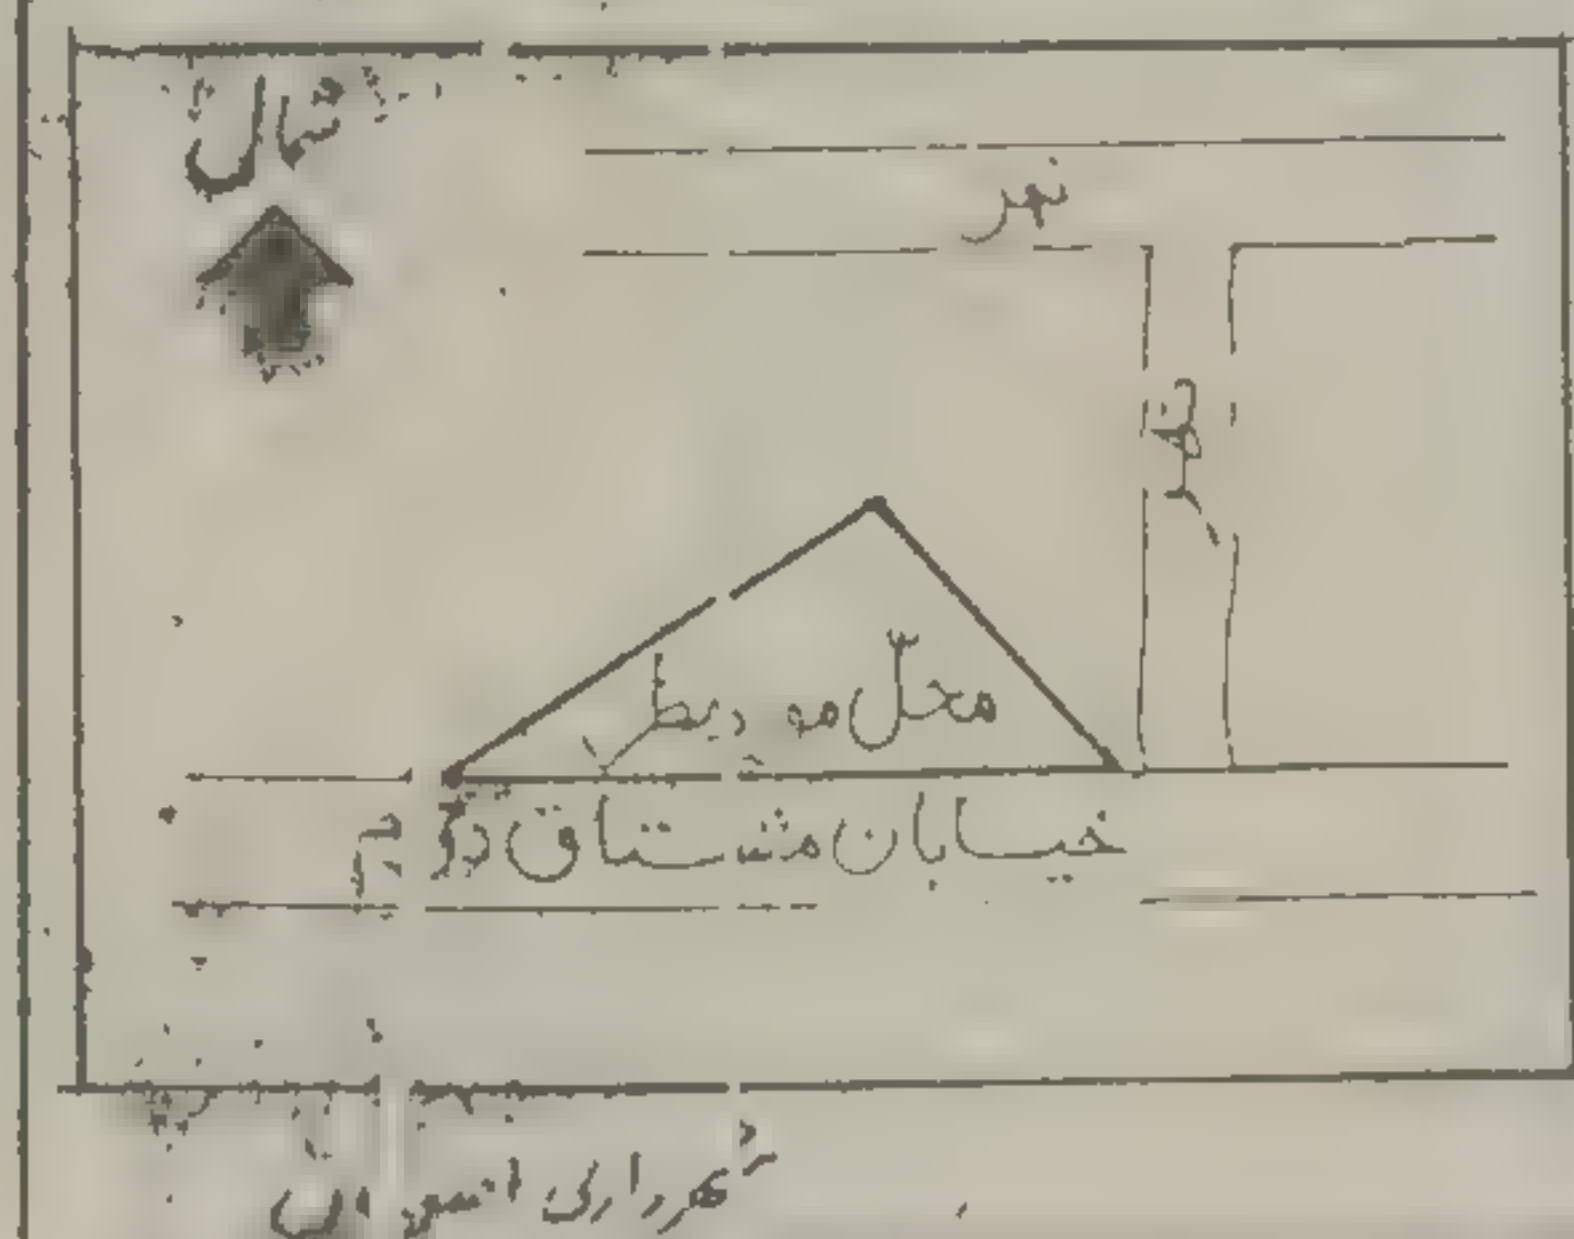 شمال
نهر
محل مورد نظر
خیابان مشتاق دوم
شهرداری اصفهان